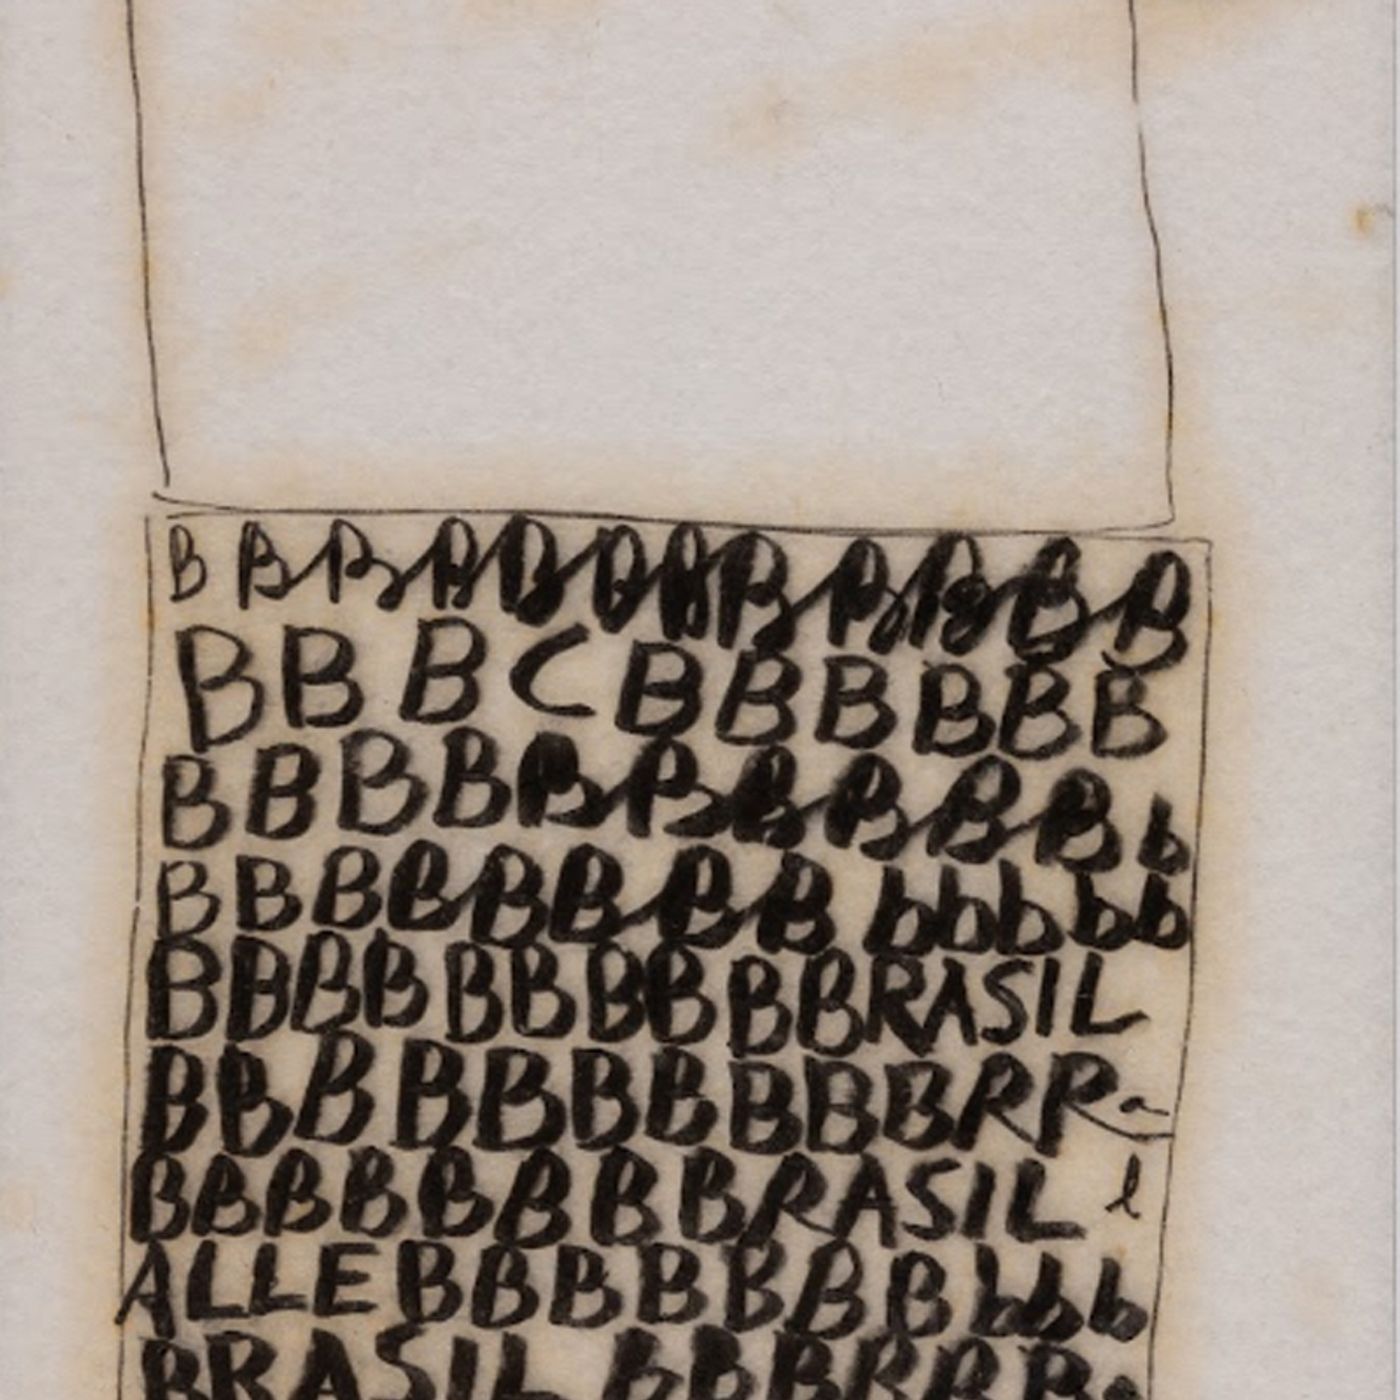 B B B B B B B B B B B B
B B B C B B B B B B
B B B B B B B B B B b
B B B B B B B B b b b b b
B B B B B B B B B BRASIL
B B B B B B B B B B R R a
B B B B B B B BRASIL l
ALLE B B B B B B B b b b
BRASIL